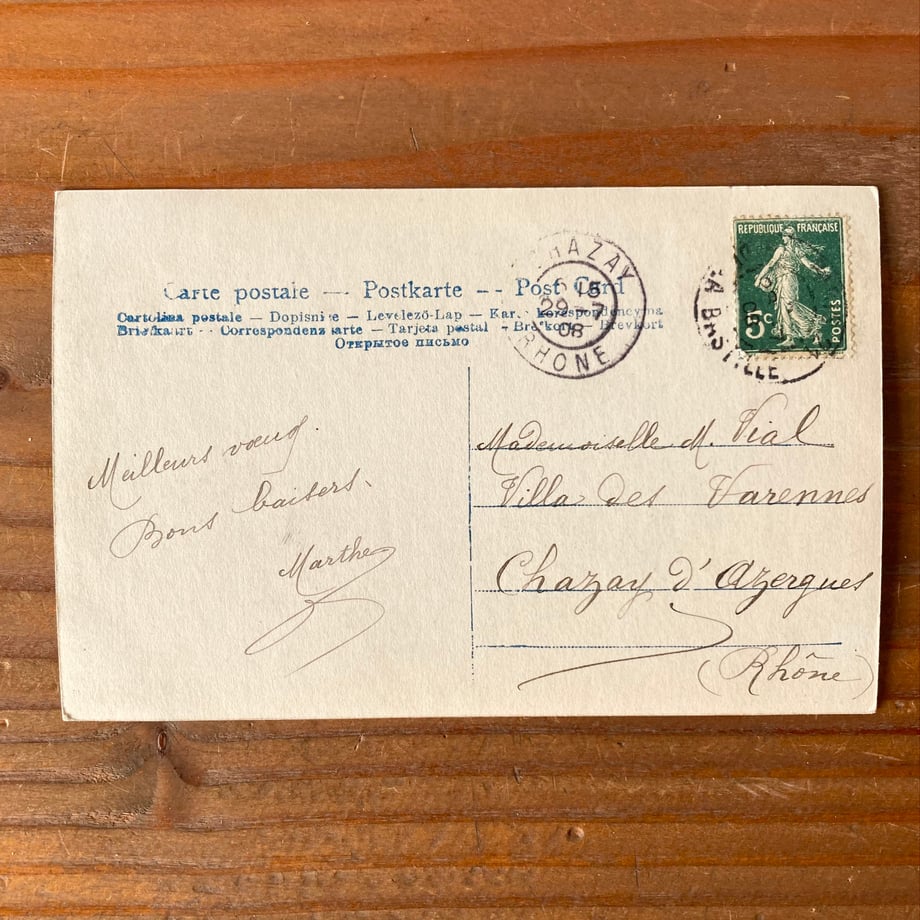 Carte postale — Postkarte — Post Card
Cartolina postale — Dopisnice — Levelező-Lap — Kar. korespondencyjna
Briefkaart — Correspondenzkarte — Tarjeta postal — Brefkort — Brevkort
Открытое письмо
CHAZAY
29 - 7
08
RHONE
REPUBLIQUE FRANÇAISE
5c
POSTES
LA BASTILLE
Meilleurs vœux.
Bons baisers.
Marthe
Mademoiselle M. Vial
Villa des Varennes
Chazay d'Azergues
(Rhône)